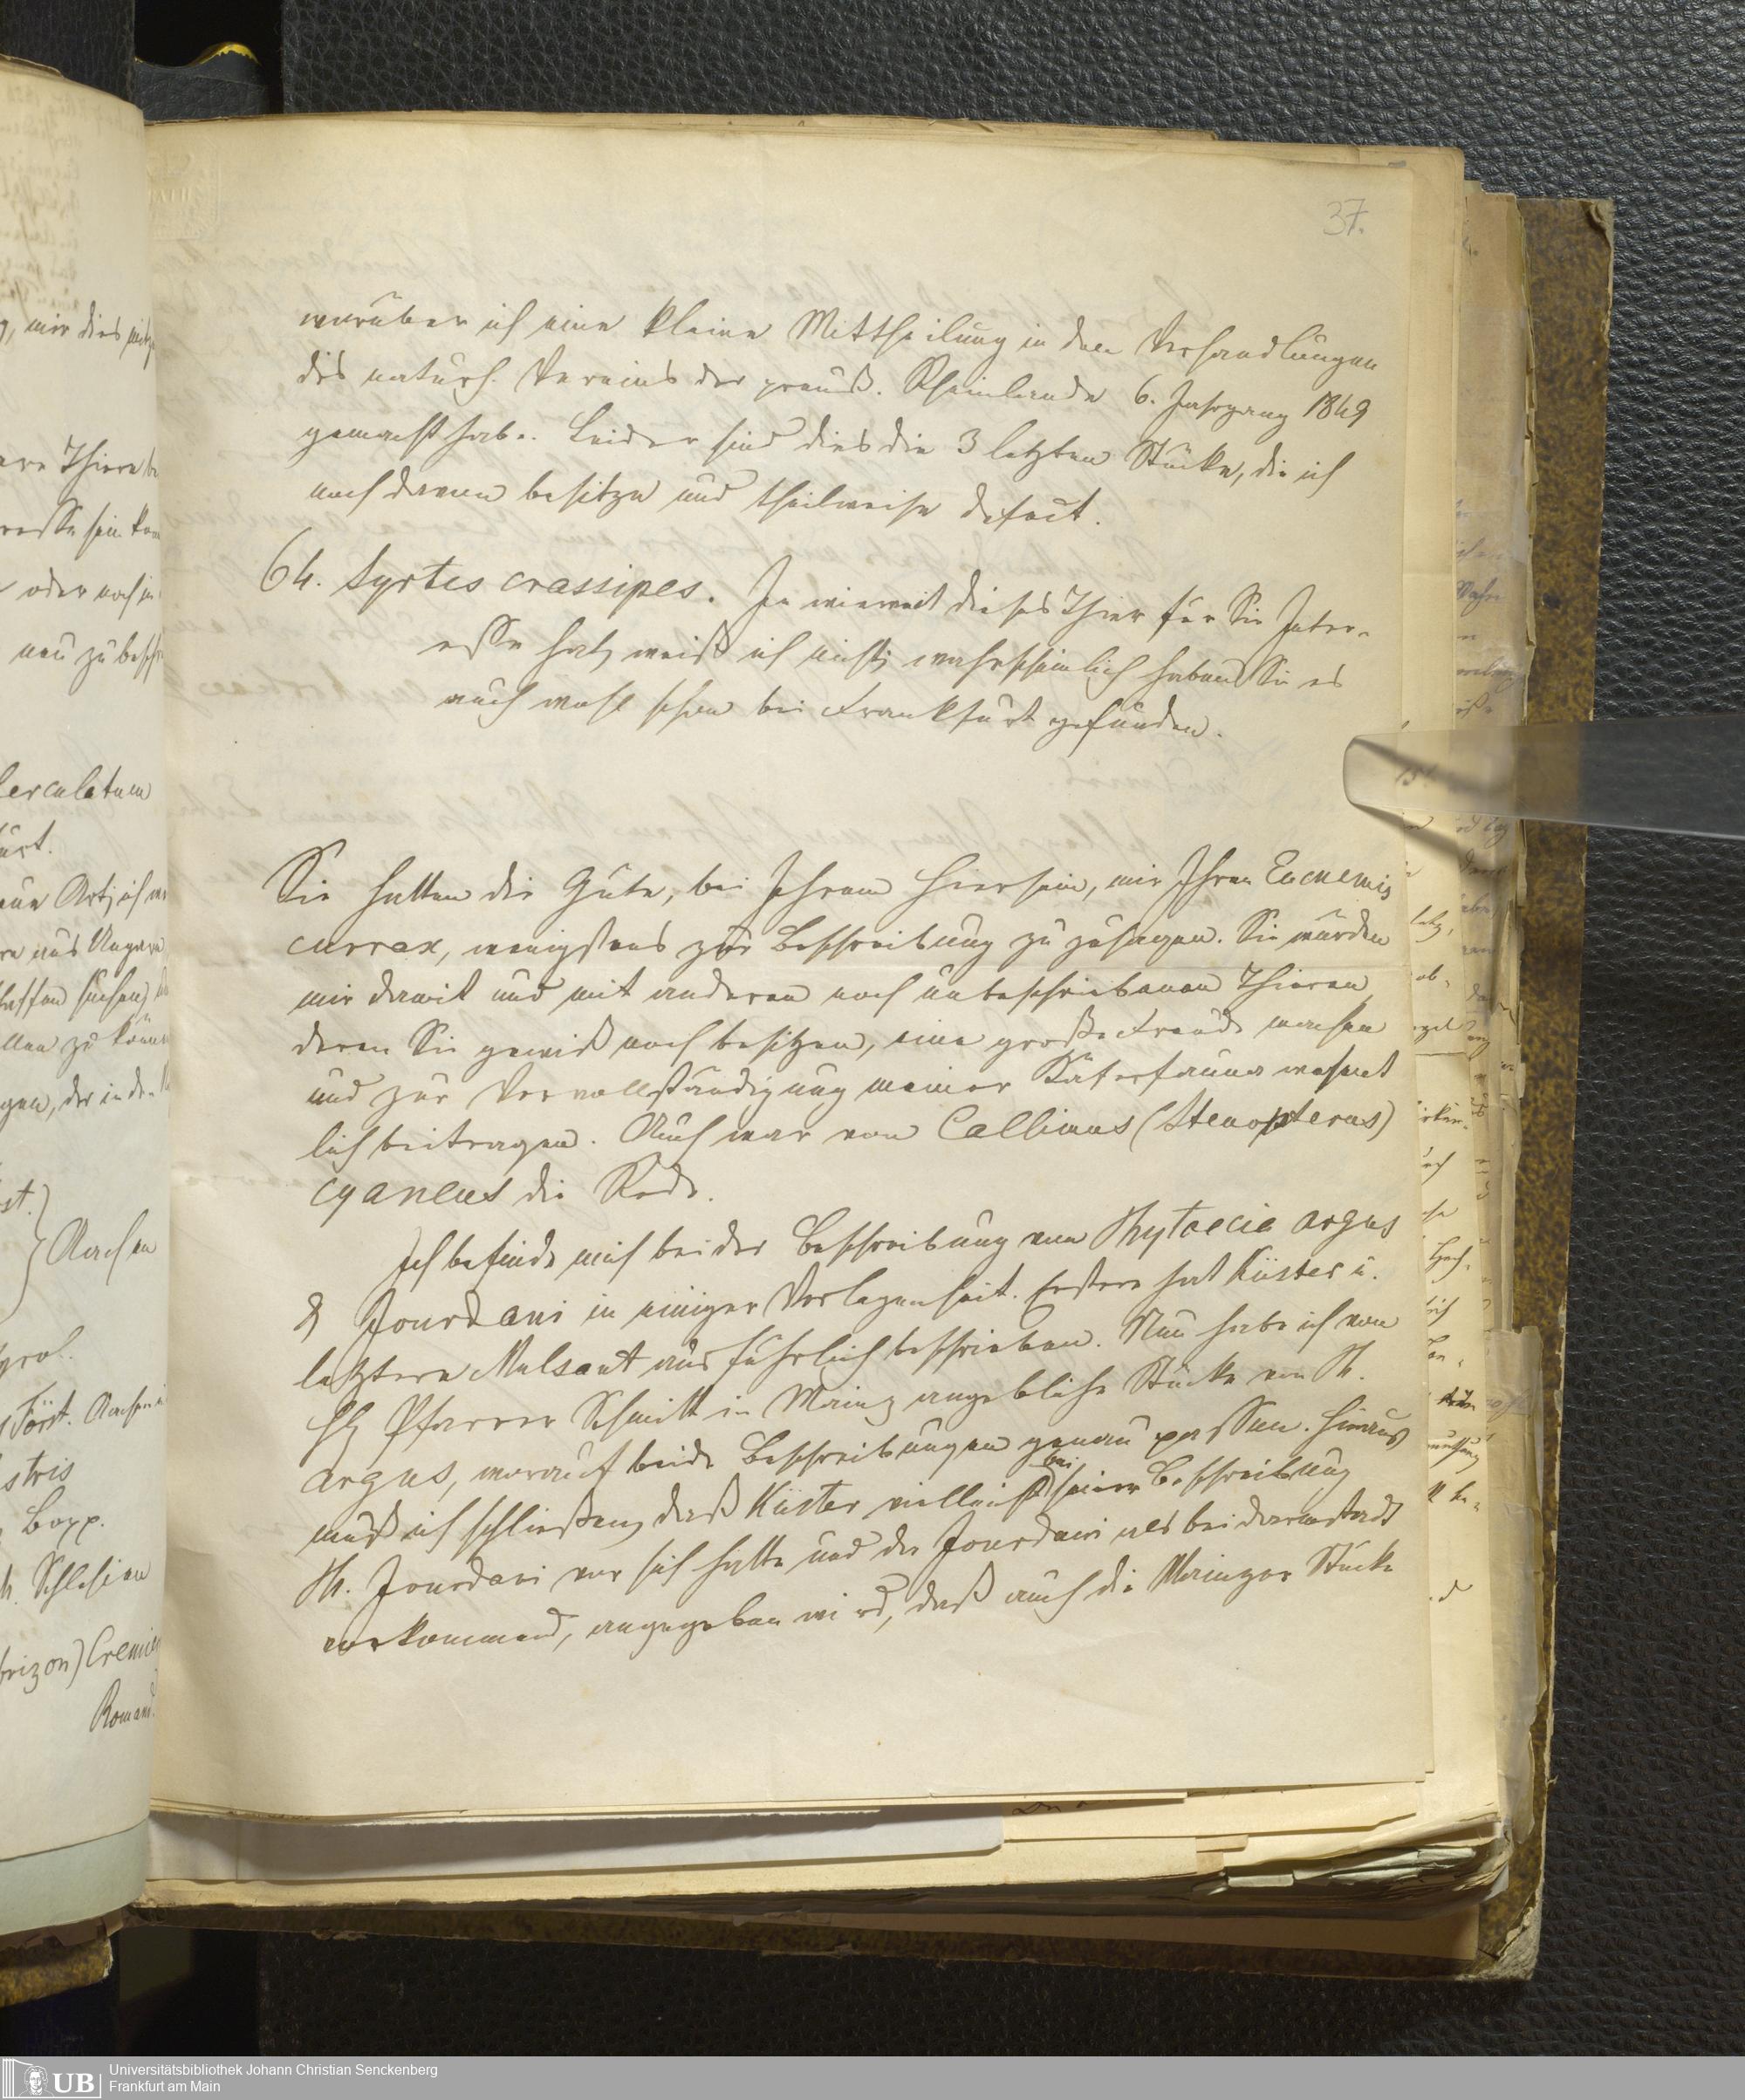 37.
worüber ich eine kleine Mittheilung in den Verhandlungen
des naturh. Vereins der preuß. Rheinlande 6. Jahrgang 1849
gemacht habe. Leider sind dies die 3 letzten Stücke, die ich
noch davon besitze und theilweise defect.
64. Syrtis crassipes. In wieweit dieses Thier für Sie Inter-
esse hat, weiß ich nicht; wahrscheinlich haben Sie es
auch wohl schon bei Frankfurt gefunden.
Sie hatten die Güte, bei Ihrem Hiersein, mir Ihren Eucnemis
currax, wenigstens zur Beschreibung zu zusagen. Sie würden
mir damit und mit anderen noch unbeschriebenen Thieren
deren Sie gewiß noch besitzen, eine große Freude machen
und zur Vervollständigung meiner Käferfauna wesent
lich beitragen. Auch war von Callimus (Stenopterus)
cyaneus die Rede.
Ich befinde mich bei der Beschreibung von Phytoecia argus
& Jourdani in einiger Verlegenheit. Erstere hat Küster u.
letztere Mulsant ausführlich beschrieben. Nun habe ich von
H Pfarrer Schmitt in Mainz angebliche Stücke von Ph.
argus, worauf beide Beschreibungen genau passen. Hieraus
muß ich schließen, daß Küster vielleicht bei seiner Beschreibung
Ph. Jourdani vor sich hatte und da Jourdani als bei Darmstadt
vorkommend, angegeben wird, daß auch die Mainzer Stücke
UB
Universitätsbibliothek Johann Christian Senckenberg
Frankfurt am Main